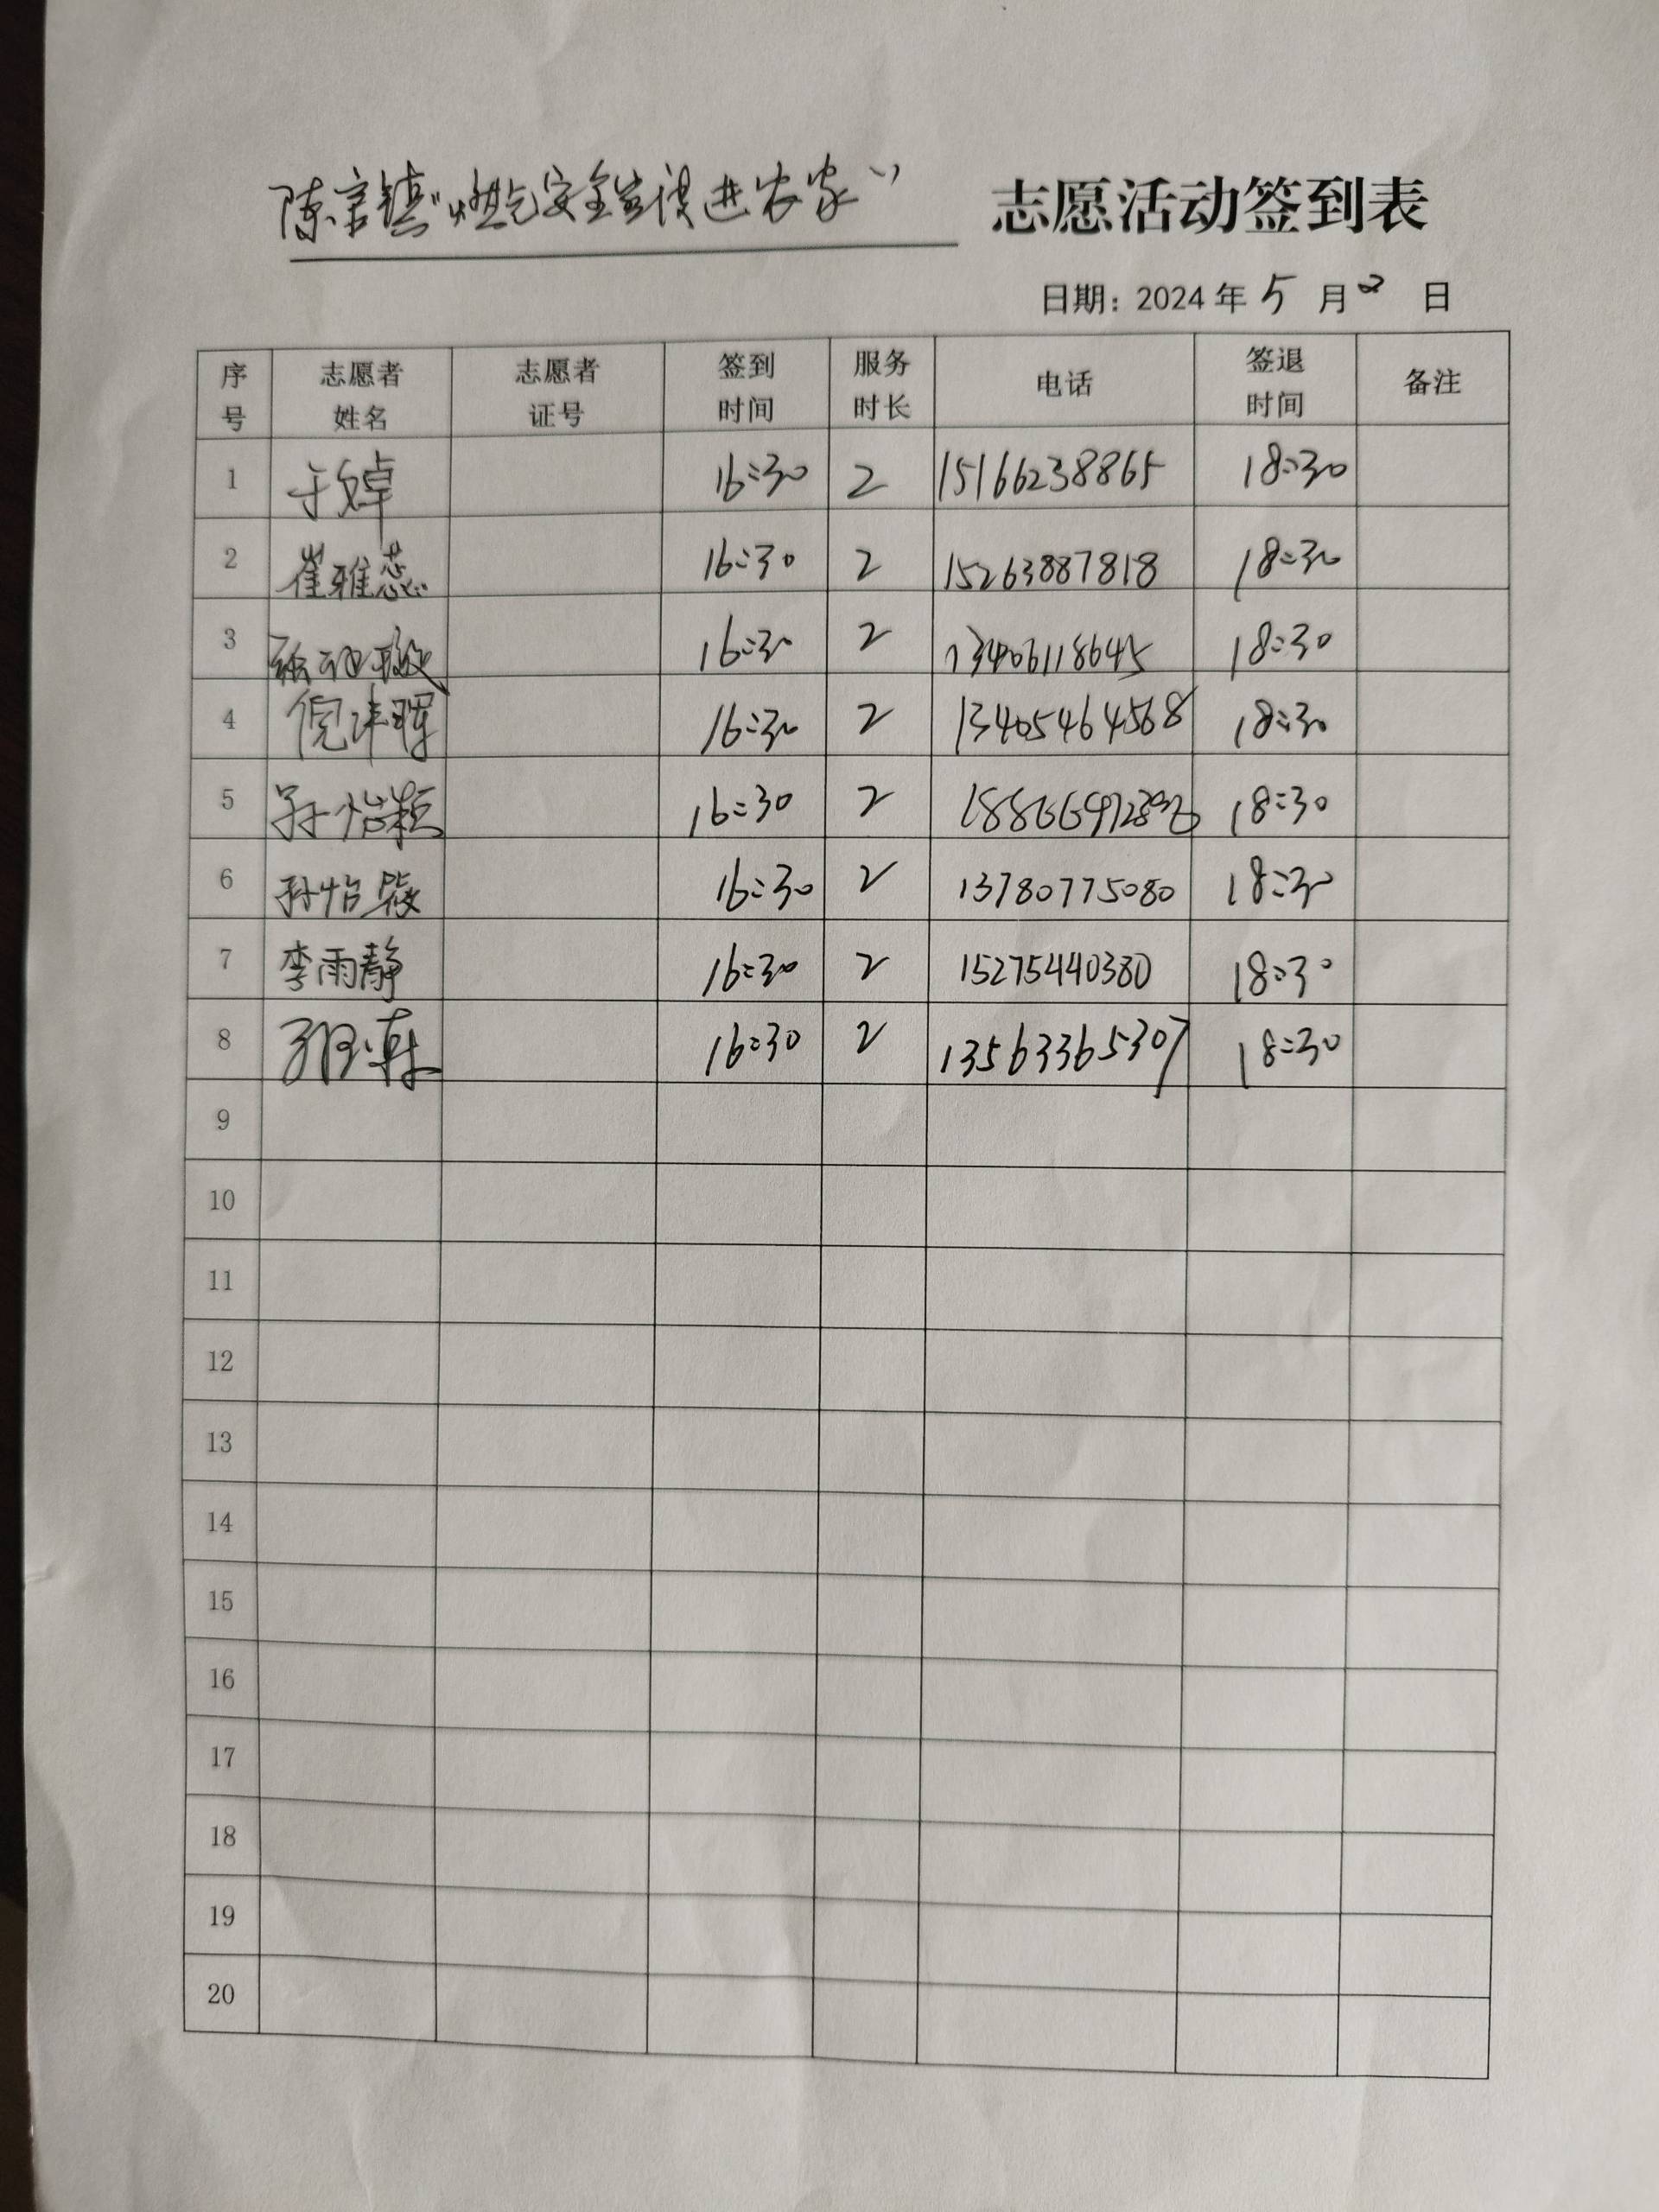 陈官镇“燃气安全宣传进农家” 志愿活动签到表
日期：2024年5月2日
序号 志愿者姓名 志愿者证号 签到时间 服务时长 电话 签退时间 备注
1 16:30 2 15166238865 18:30
2 崔雅蕊 16:30 2 15263887818 18:30
3 16:30 2 13406118645 18:30
4 16:30 2 13405464568 18:30
5 孙怡颖 16:30 2 18:30
6 孙怡璇 16:30 2 13780775080 18:30
7 李雨静 16:30 2 15275440380 18:30
8 16:30 2 13563365307 18:30
9
10
11
12
13
14
15
16
17
18
19
20